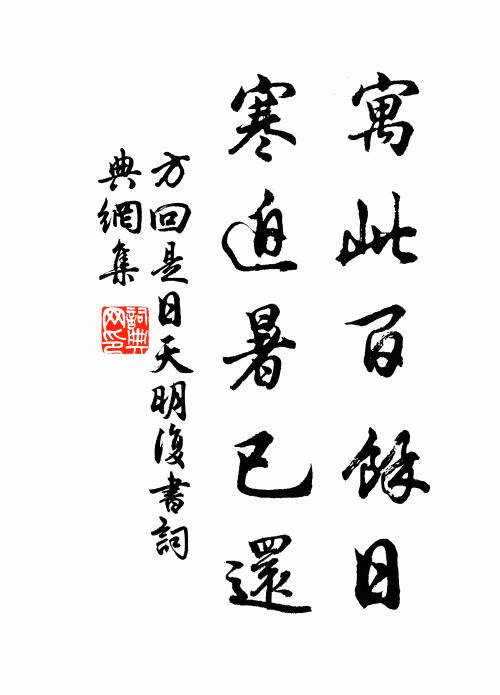 寓此百餘日
寒迫暑已還
方回是日天明復書詞
典網集
詞典
网印